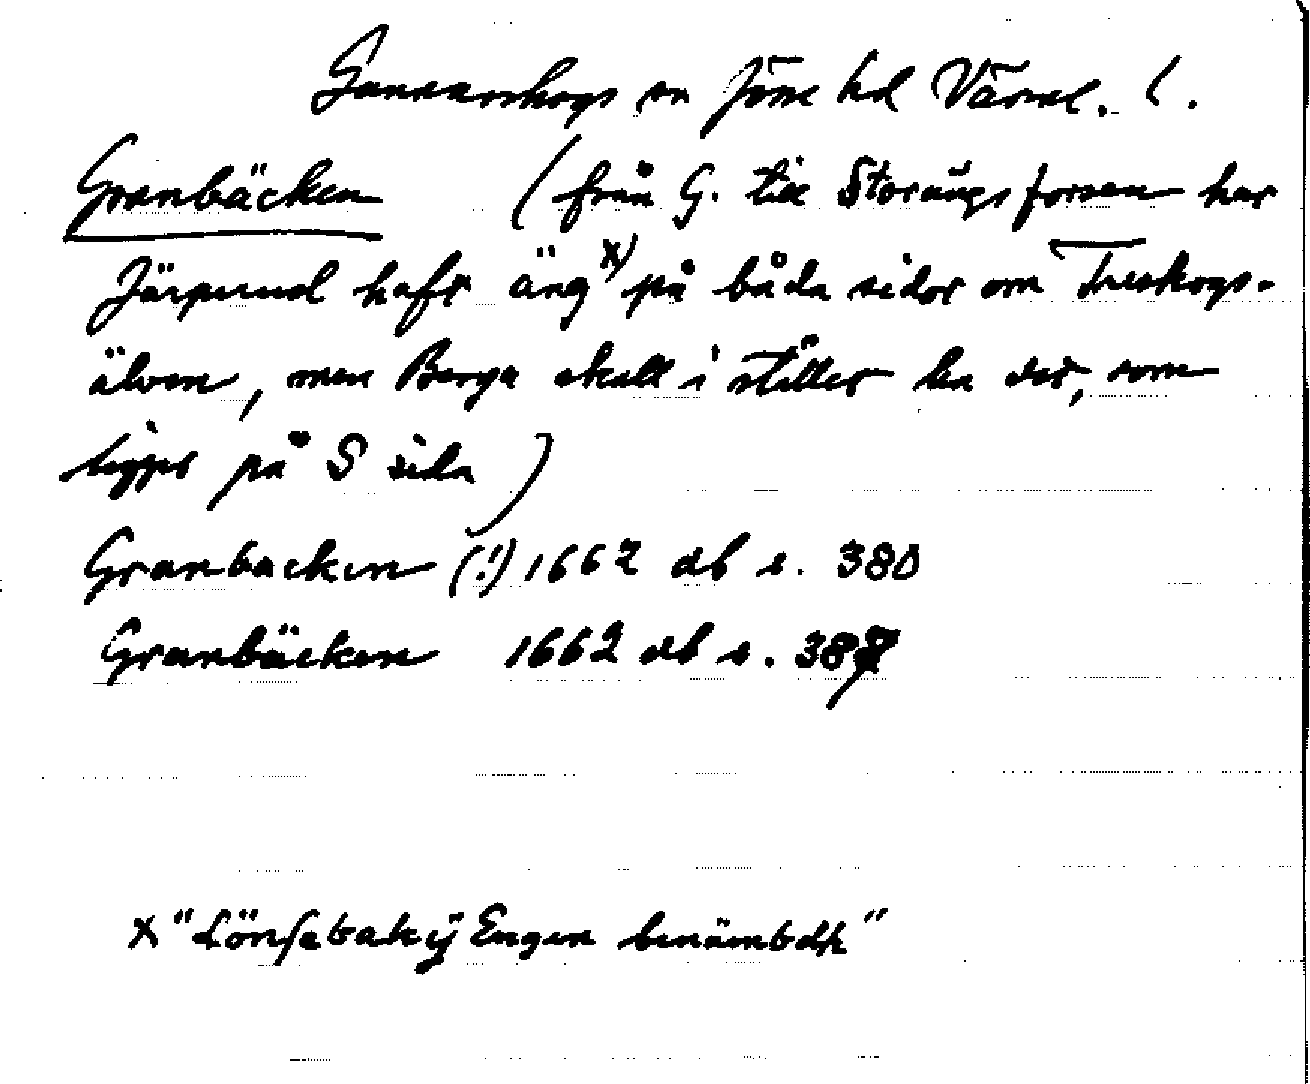 Gunnarskogs sn Jösse hd Värml. l.
Granbäcken (från G. till Storängsforsen har
Järperud haft äng x) på båda sidor om Treskogs-
älven, men Berga skall i stället ha det, som
ligger på S sida)
Granbacken (!) 1662 db s. 380
Granbäcken 1662 db s.
x "Lönsebakij Engen benämbdh"